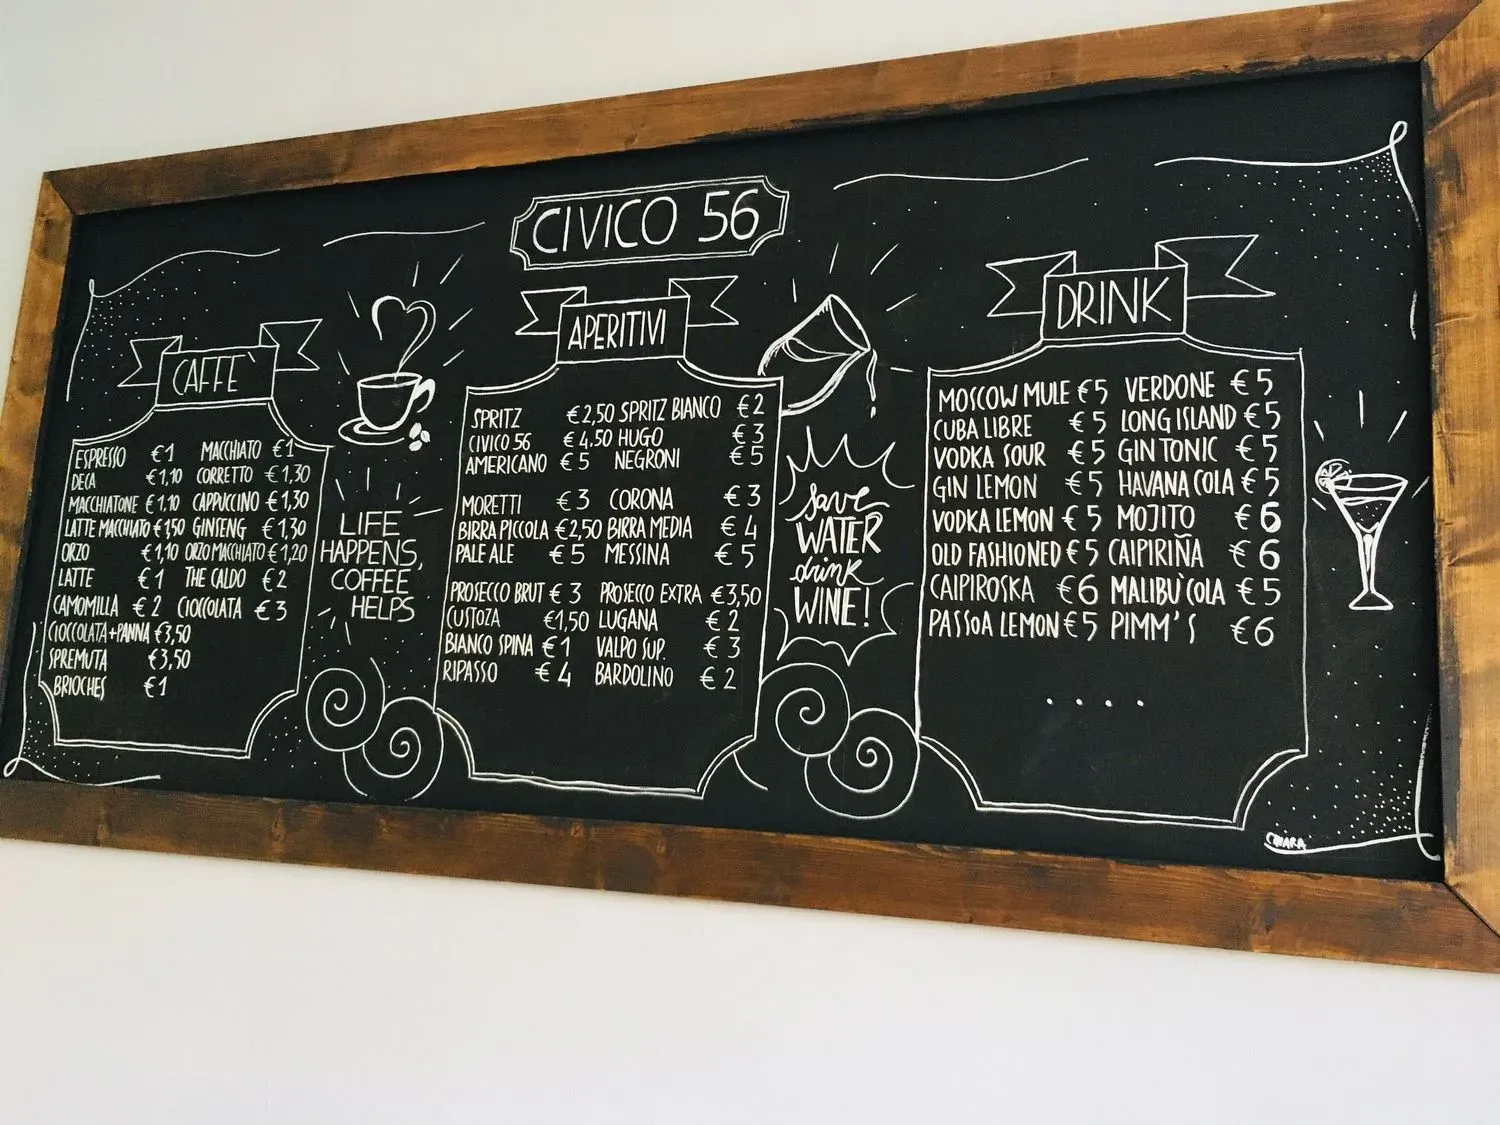 CIVICO 56
CAFFE`
ESPRESSO €1 MACCHIATO €1
DECA €1,10 CORRETTO €1,30
MACCHIATONE €1.10 CAPPUCCINO €1,30
LATTE MACCHIATO €1,50 GINSENG €1,30
ORZO €1,10 ORZO MACCHIATO €1,20
LATTE €1 THE CALDO €2
CAMOMILLA €2 CIOCCOLATA €3
CIOCCOLATA+PANNA €3,50
SPREMUTA €3,50
BRIOCHES €1
LIFE
HAPPENS,
COFFEE
HELPS
APERITIVI
SPRITZ €2,50 SPRITZ BIANCO €2
CIVICO 56 €4.50 HUGO €3
AMERICANO €5 NEGRONI €5
MORETTI €3 CORONA €3
BIRRA PICCOLA €2,50 BIRRA MEDIA €4
PALE ALE €5 MESSINA €5
PROSECCO BRUT €3 PROSECCO EXTRA €3,50
CUSTOZA €1,50 LUGANA €2
BIANCO SPINA €1 VALPO SUP. €3
RIPASSO €4 BARDOLINO €2
save
WATER
drink
WINE!
DRINK
MOSCOW MULE €5 VERDONE €5
CUBA LIBRE €5 LONG ISLAND €5
VODKA SOUR €5 GIN TONIC €5
GIN LEMON €5 HAVANA COLA €5
VODKA LEMON €5 MOJITO €6
OLD FASHIONED €5 CAIPIRIÑA €6
CAIPIROSKA €6 MALIBÙ COLA €5
PASSOA LEMON €5 PIMM'S €6
....
CHIARA